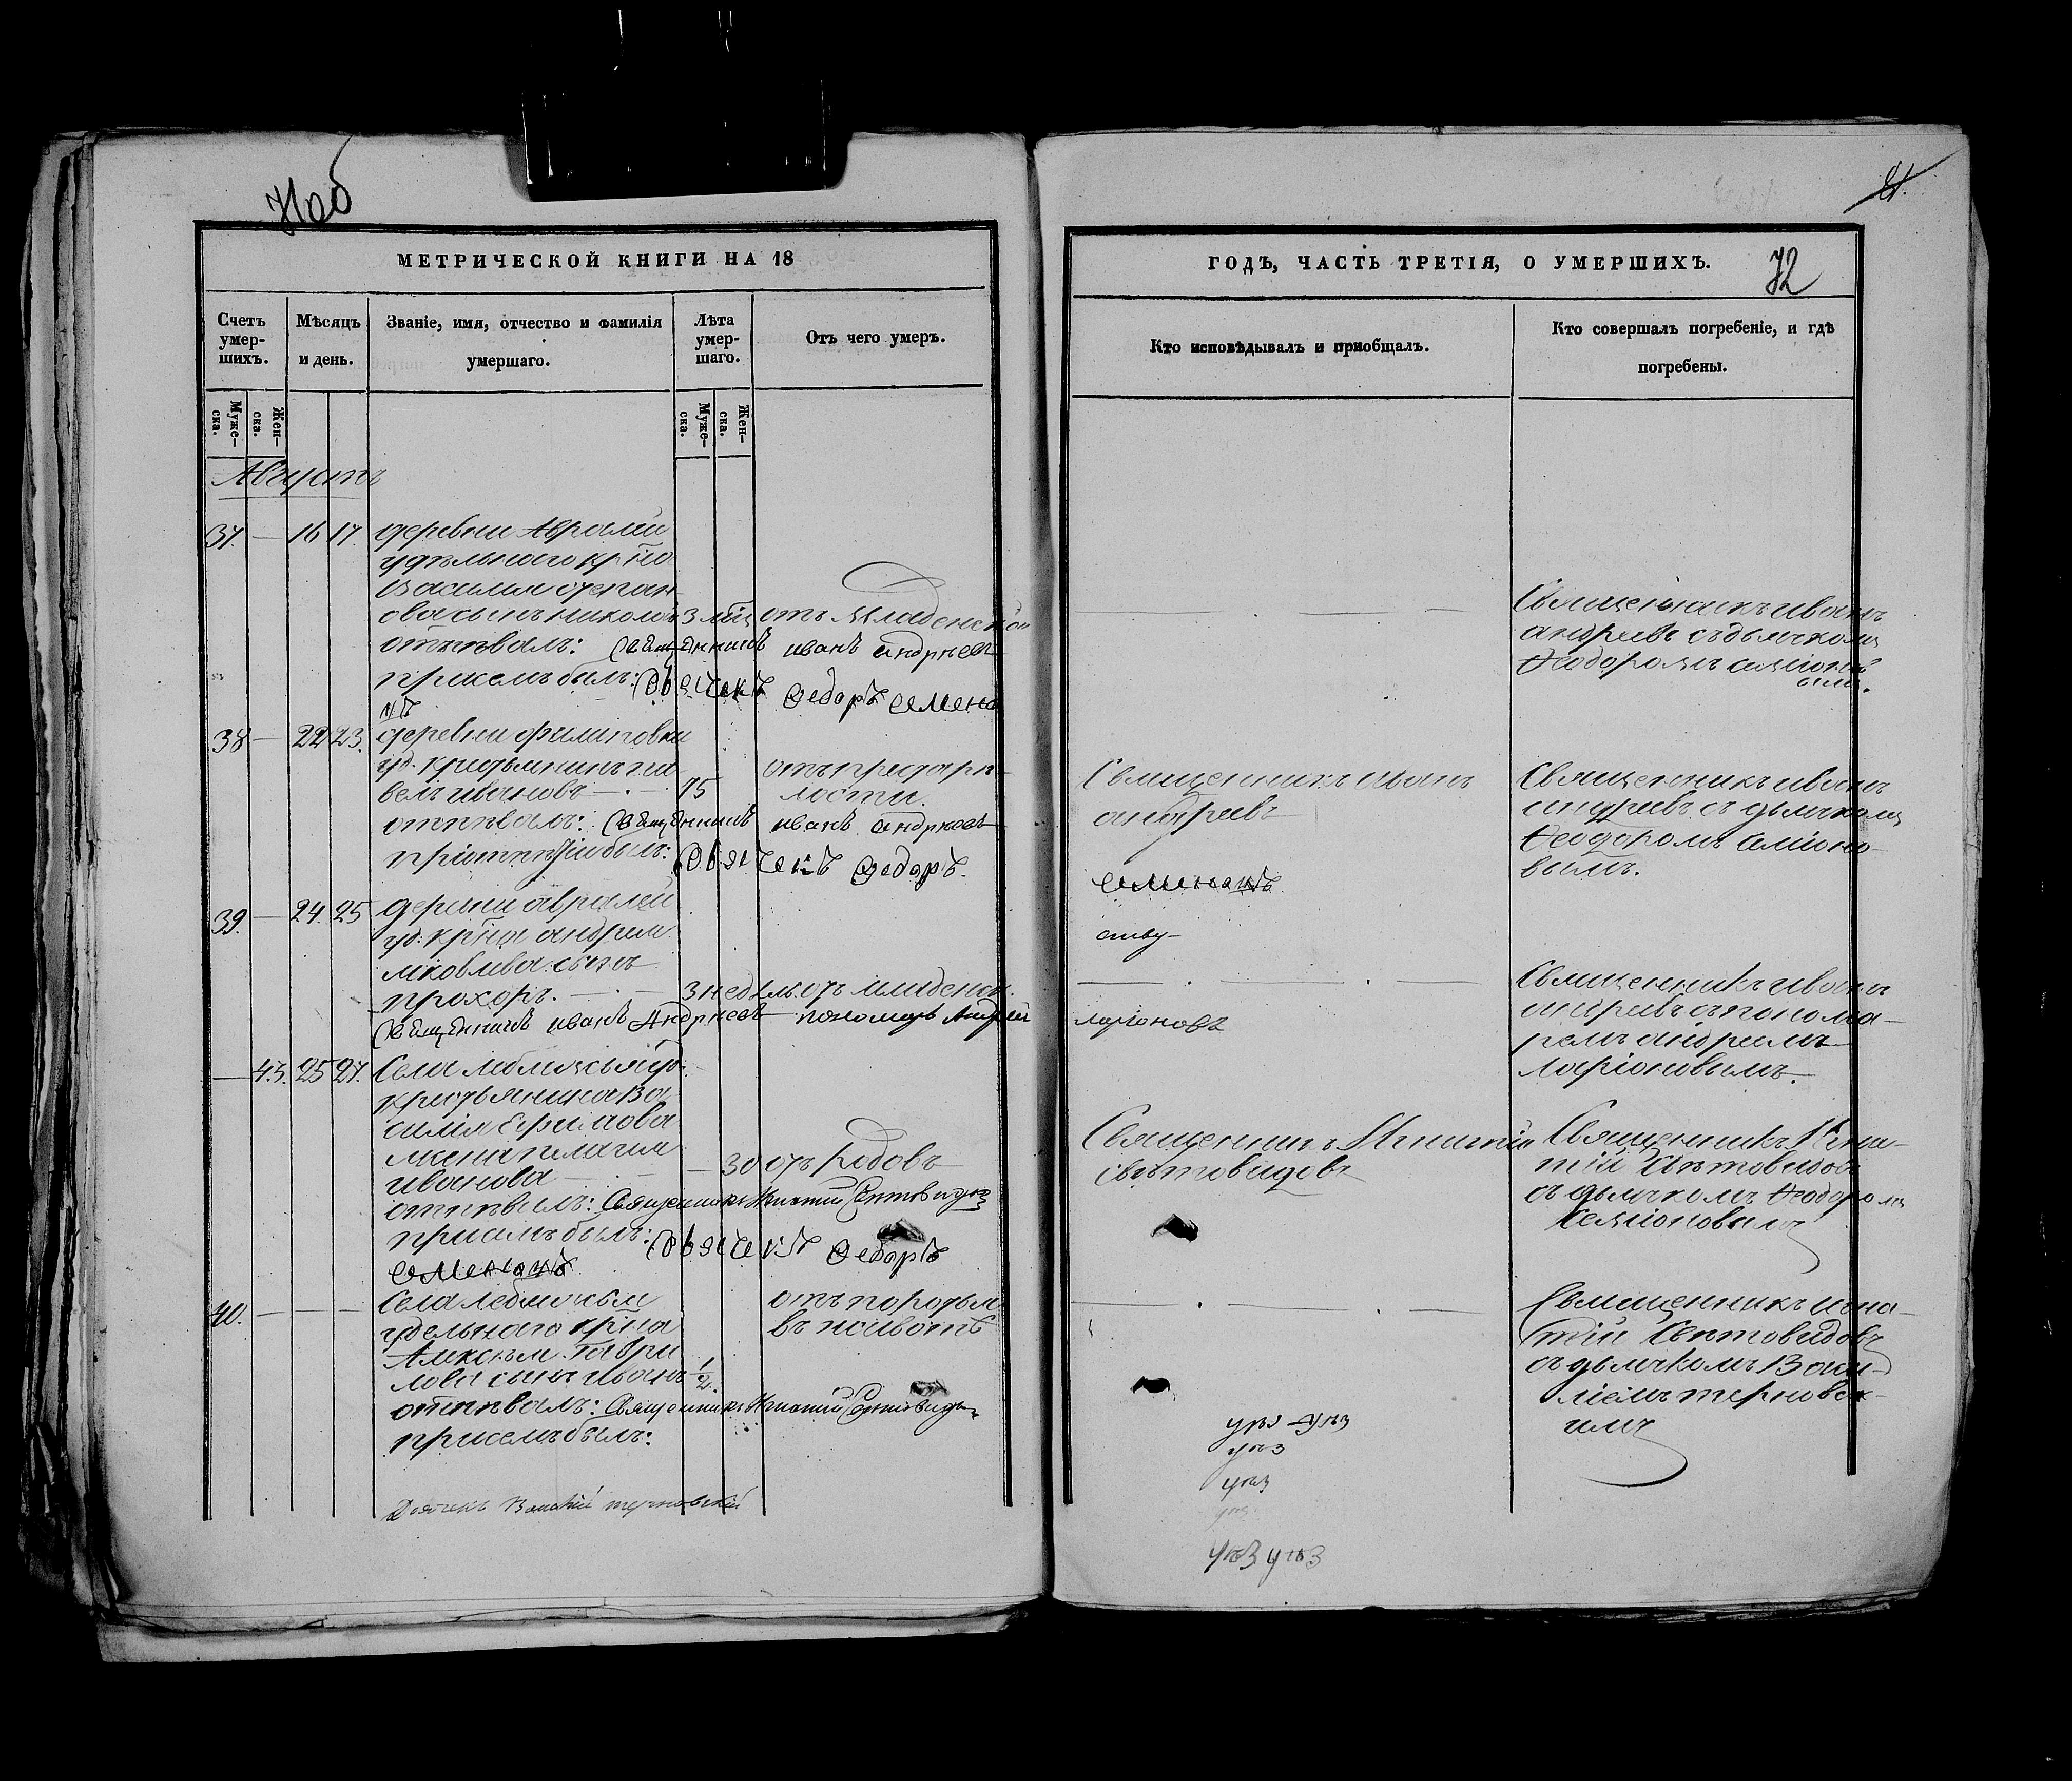 Ноб
МЕТРИЧЕСКОЙ КНИГИ НА 18
Счетъ умер-шихъ.
Мѣсяцъ и день.
Званіе, имя, отчество и фамилія умершаго.
Лѣта умер-шаго.
Отъ чего умеръ.
Муже-ска.
Жен-ска.
Муже-ска.
Жен-ска.
Августъ
37. — 16 17. деревни Авралей
удѣльнаго кр̃на
Василія степан
ова сынъ николай 3 мѣц отъ младенской
отпѣвалъ: Священникъ иванъ андрѣевъ
при семъ былъ: дьячекъ Федоръ семено
въ
38 — 22 23. деревни филиповки
уд. крестьянинъ па
велъ ивановъ — 75
отъ престарѣ-
лости.
отпѣвалъ: Священникъ иванъ андрѣевъ
при отпѣтіи былъ: дьячекъ Федоръ.
39. — 24. 25 дерѣвни авралей
уд: кр̃на андрея
яковлева сынъ
прохоръ. — 3 недѣль. отъ младенск.
Священникъ иванъ Андрѣевъ пономарь Андрей
— 43. 25 27. Села
крестьянина Ва
силія Ефимова
жена пелагия
иванова — 30 отъ родовъ
отпѣвалъ: Священникъ Игнатий Свѣтовидовъ
при семъ былъ: дьячекъ Федоръ
семеновъ
40. — — — Села
удельнаго кр̃на
Алексѣя Гаври
лова сынъ иванъ 1/2.
отъ порозьи
въ животѣ
отпѣвалъ: Священникъ Игнатий Свѣтовидовъ
при семъ былъ:
Дьячекъ Василий терновский
72
ГОДЪ, ЧАСТЬ ТРЕТІЯ, О УМЕРШИХЪ.
Кто исповѣдывалъ и приобщалъ.
Кто совершалъ погребеніе, и гдѣ погребены.
Священникъ иванъ
андреевъ съ дьячкомъ
Феодоромъ семіоно
вымъ.
Священникъ иванъ
андреевъ
семеновъ
Священникъ иванъ
андреевъ съ дьячкомъ
Феодоромъ семіоно-
вымъ.
ларіоновъ
Священникъ иванъ
андреевъ съ понома-
ремъ андреемъ
ларіоновымъ.
Священникъ Игнатій
Свѣтовидовъ
Священникъ Игна-
тій Свѣтовидовъ
съ дьячкомъ Феодоромъ
Семіоновымъ
Священникъ игна-
тій Свѣтовидовъ
съ дьячкомъ Васи-
ліемъ терновск-
имъ